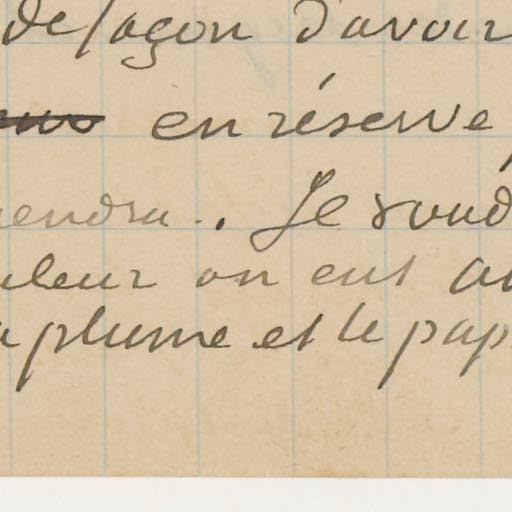 de façon d'avoir
en réserve
endra.. Je voud
aleur on eut au
plume et le pap